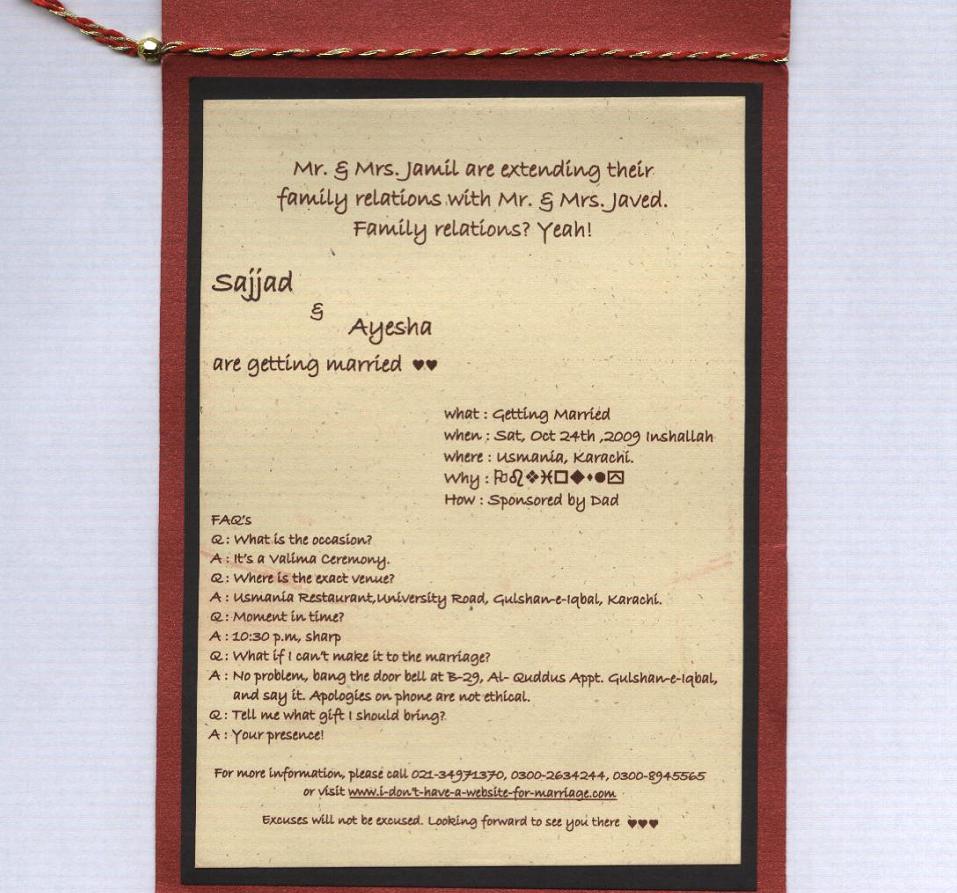 Mr. & Mrs. Jamil are extending their
family relations with Mr. & Mrs. Javed.
Family relations? Yeah!
Sajjad
&
Ayesha
are getting married ♥♥
what : Getting Married
when : Sat, Oct 24th ,2009 Inshallah
where : Usmania, Karachi.
Why :
How : Sponsored by Dad
FAQ's
Q : What is the occasion?
A : It's a Valima Ceremony.
Q : Where is the exact venue?
A : Usmania Restaurant,University Road, Gulshan-e-Iqbal, Karachi.
Q : Moment in time?
A : 10:30 p.m, sharp
Q : What if I can't make it to the marriage?
A : No problem, bang the door bell at B-29, Al- Quddus Appt. Gulshan-e-Iqbal,
and say it. Apologies on phone are not ethical.
Q : Tell me what gift I should bring?
A : Your presence!
For more information, please call 021-34971370, 0300-2634244, 0300-8945565
or visit www.i-don't-have-a-website-for-marriage.com
Excuses will not be excused. Looking forward to see you there ♥♥♥